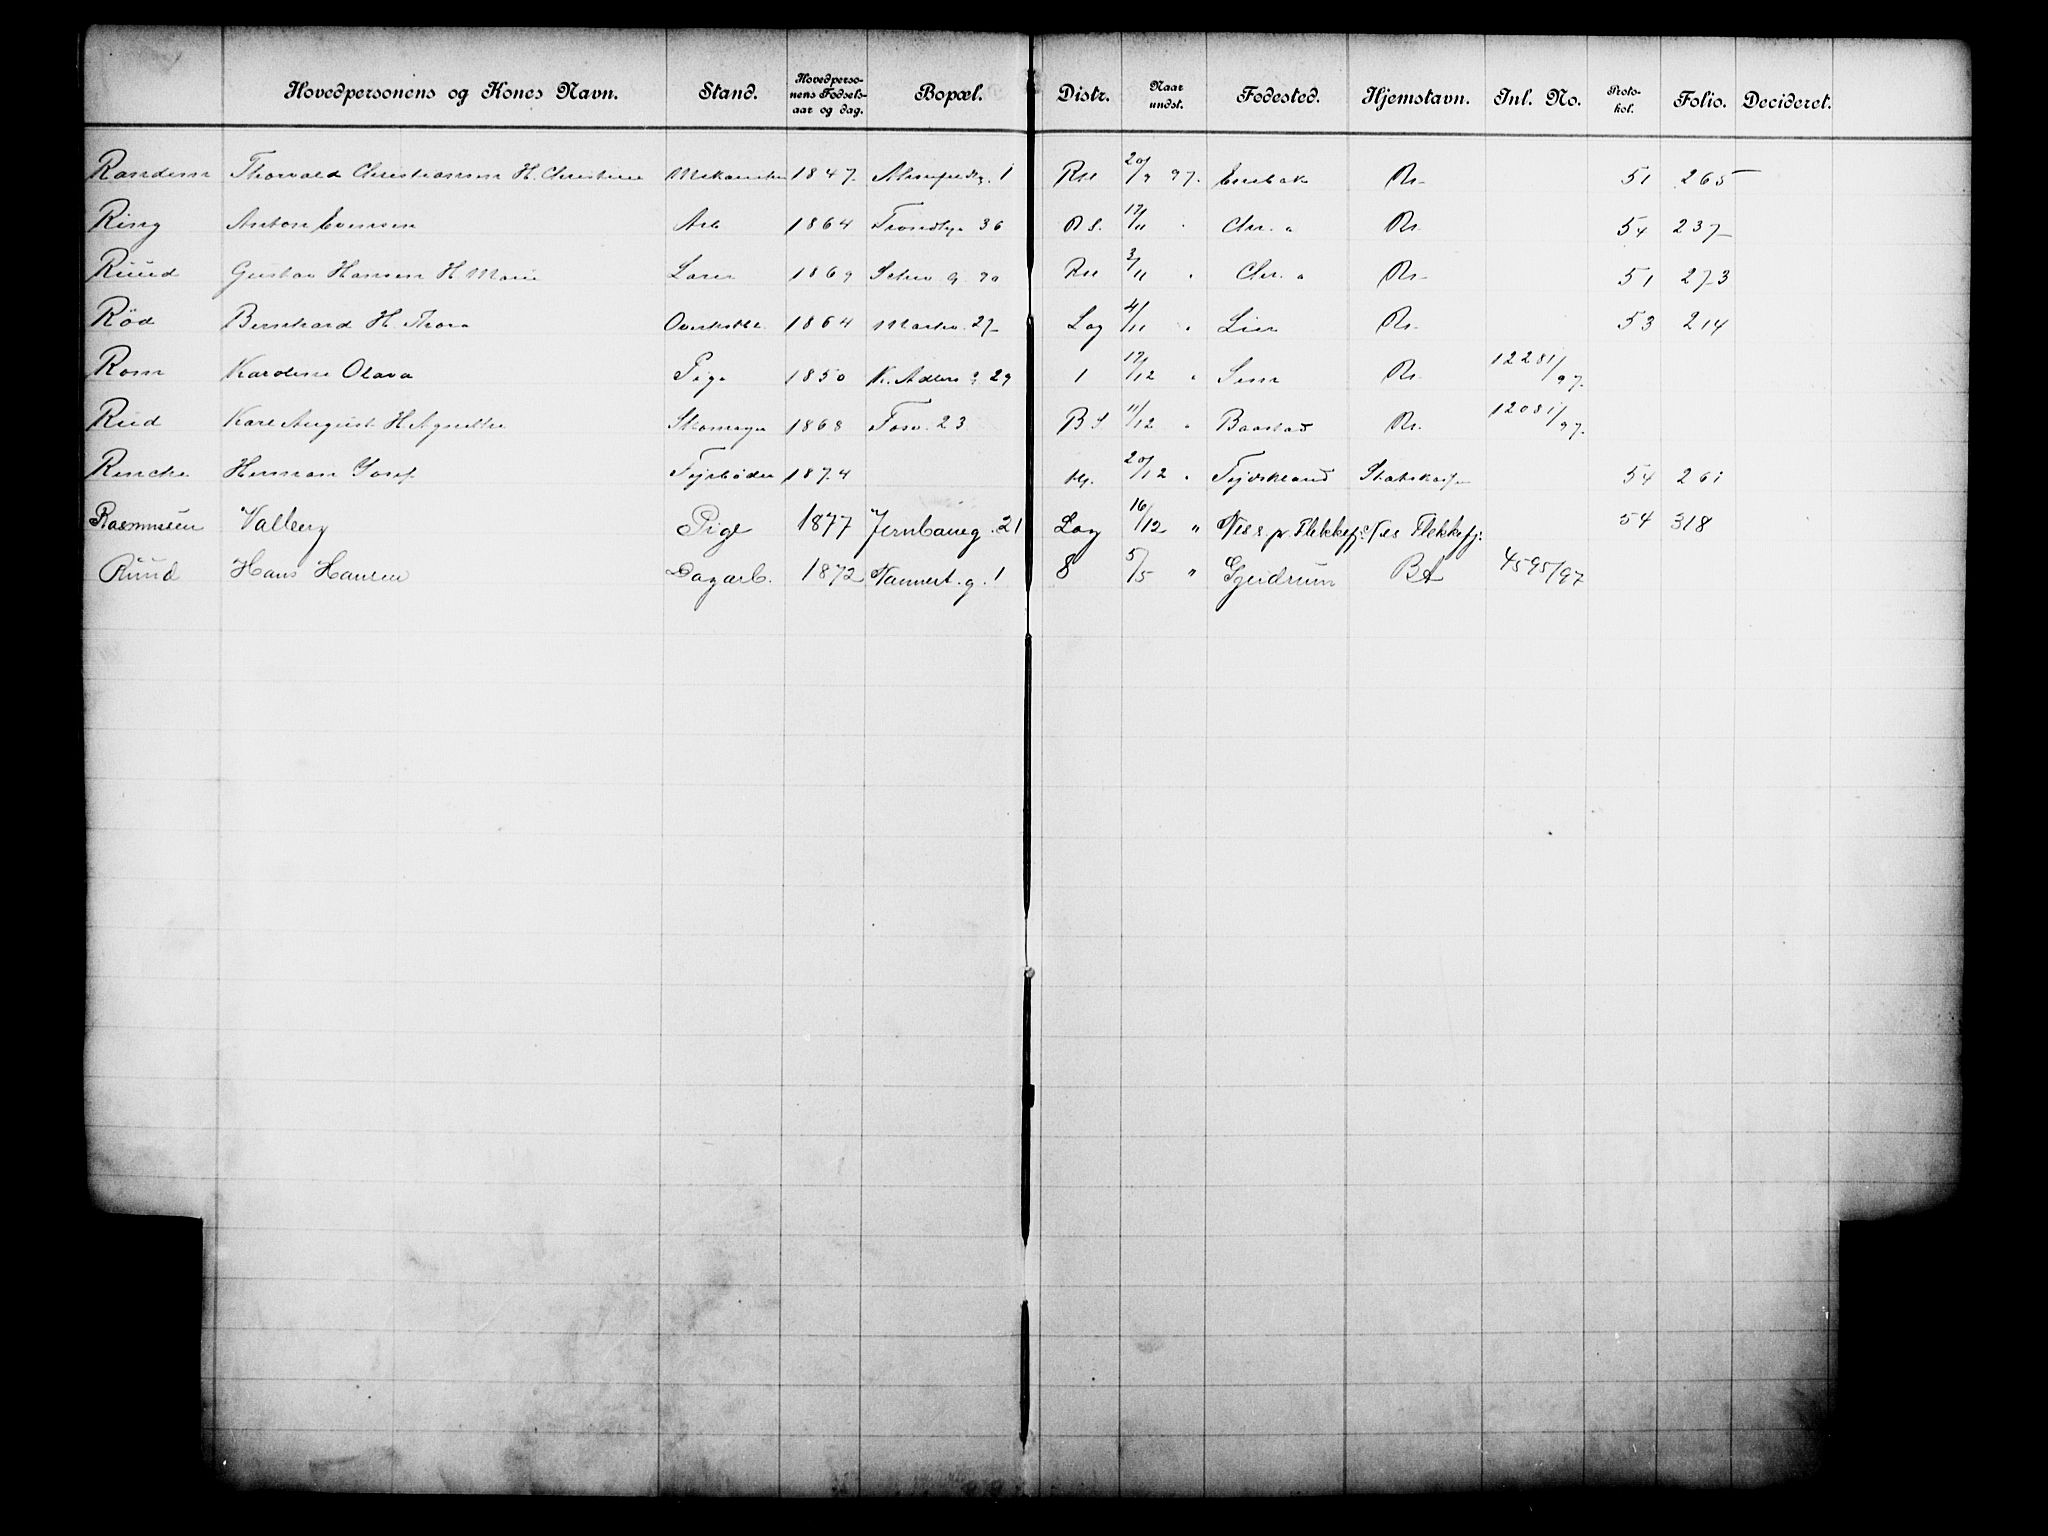 Hovedpersonens og Kones Navn. Stand. Hovedpersonens Fødselsaar og dag. Bopæl. Distr. Naar undst. Fødested. Hjemstavn. Inl. No. Protokol. Folio. Decideret.
Randem Thorvald Christiansen H. Christine 1847. 1 RH 20/9 97. Enebak Rr. 51 265
Ring Anton Evensen Arb 1864 Trondhj. 36 R S. 17/11 " Chr. a Rr. 54 237
Ruud Gustav Hansen H Marie 1869 RH 3/11 " Chr. a Rr. 51 273
Rød Bernhard H. Thora 1864 Markv. 27 Lag 4/11 " Lier Rr. 53 214
Rom Karoline Olava Pige 1850 K. Adlers g 29 1 17/12 " Rr. 12281/97.
Rud Karl August H Agnethe Skomager 1868 Fosv. 23 B S 11/12 " Baastad Rr. 12081/97.
Rencke Herman Josef Fyrbøder 1874 20/12 " Tydskland Statskassen 54 261
Rasmussen Valberg Pige 1877 Jernbaneg. 21 Lag 16/12 " Nes p. Flekkefj. Nes Flekkefj: 54 318
Ruud Hans Hansen Dagarb. 1872 Nannest. g. 1 8 5/5 " Gjeidrum BA 4595/97